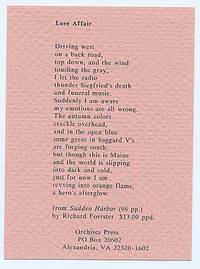 Love Affair
Driving west
on a back road,
top down, and the wind
tousling the gray,
I let the radio
thunder Siegfried's death
and funeral music.
Suddenly I am aware
my emotions are all wrong.
The autumn colors
crackle overhead,
and in the open blue
some geese in haggard V's
are forging south,
but though this is Maine
and the world is slipping
into dark and cold,
just for now I am
revving into orange flame,
a hero's afterglow.
from Sudden Harbor (96 pp.)
by Richard Foerster $13.00 ppd.
Orchises Press
PO Box 20602
Alexandria, VA 22320-1602